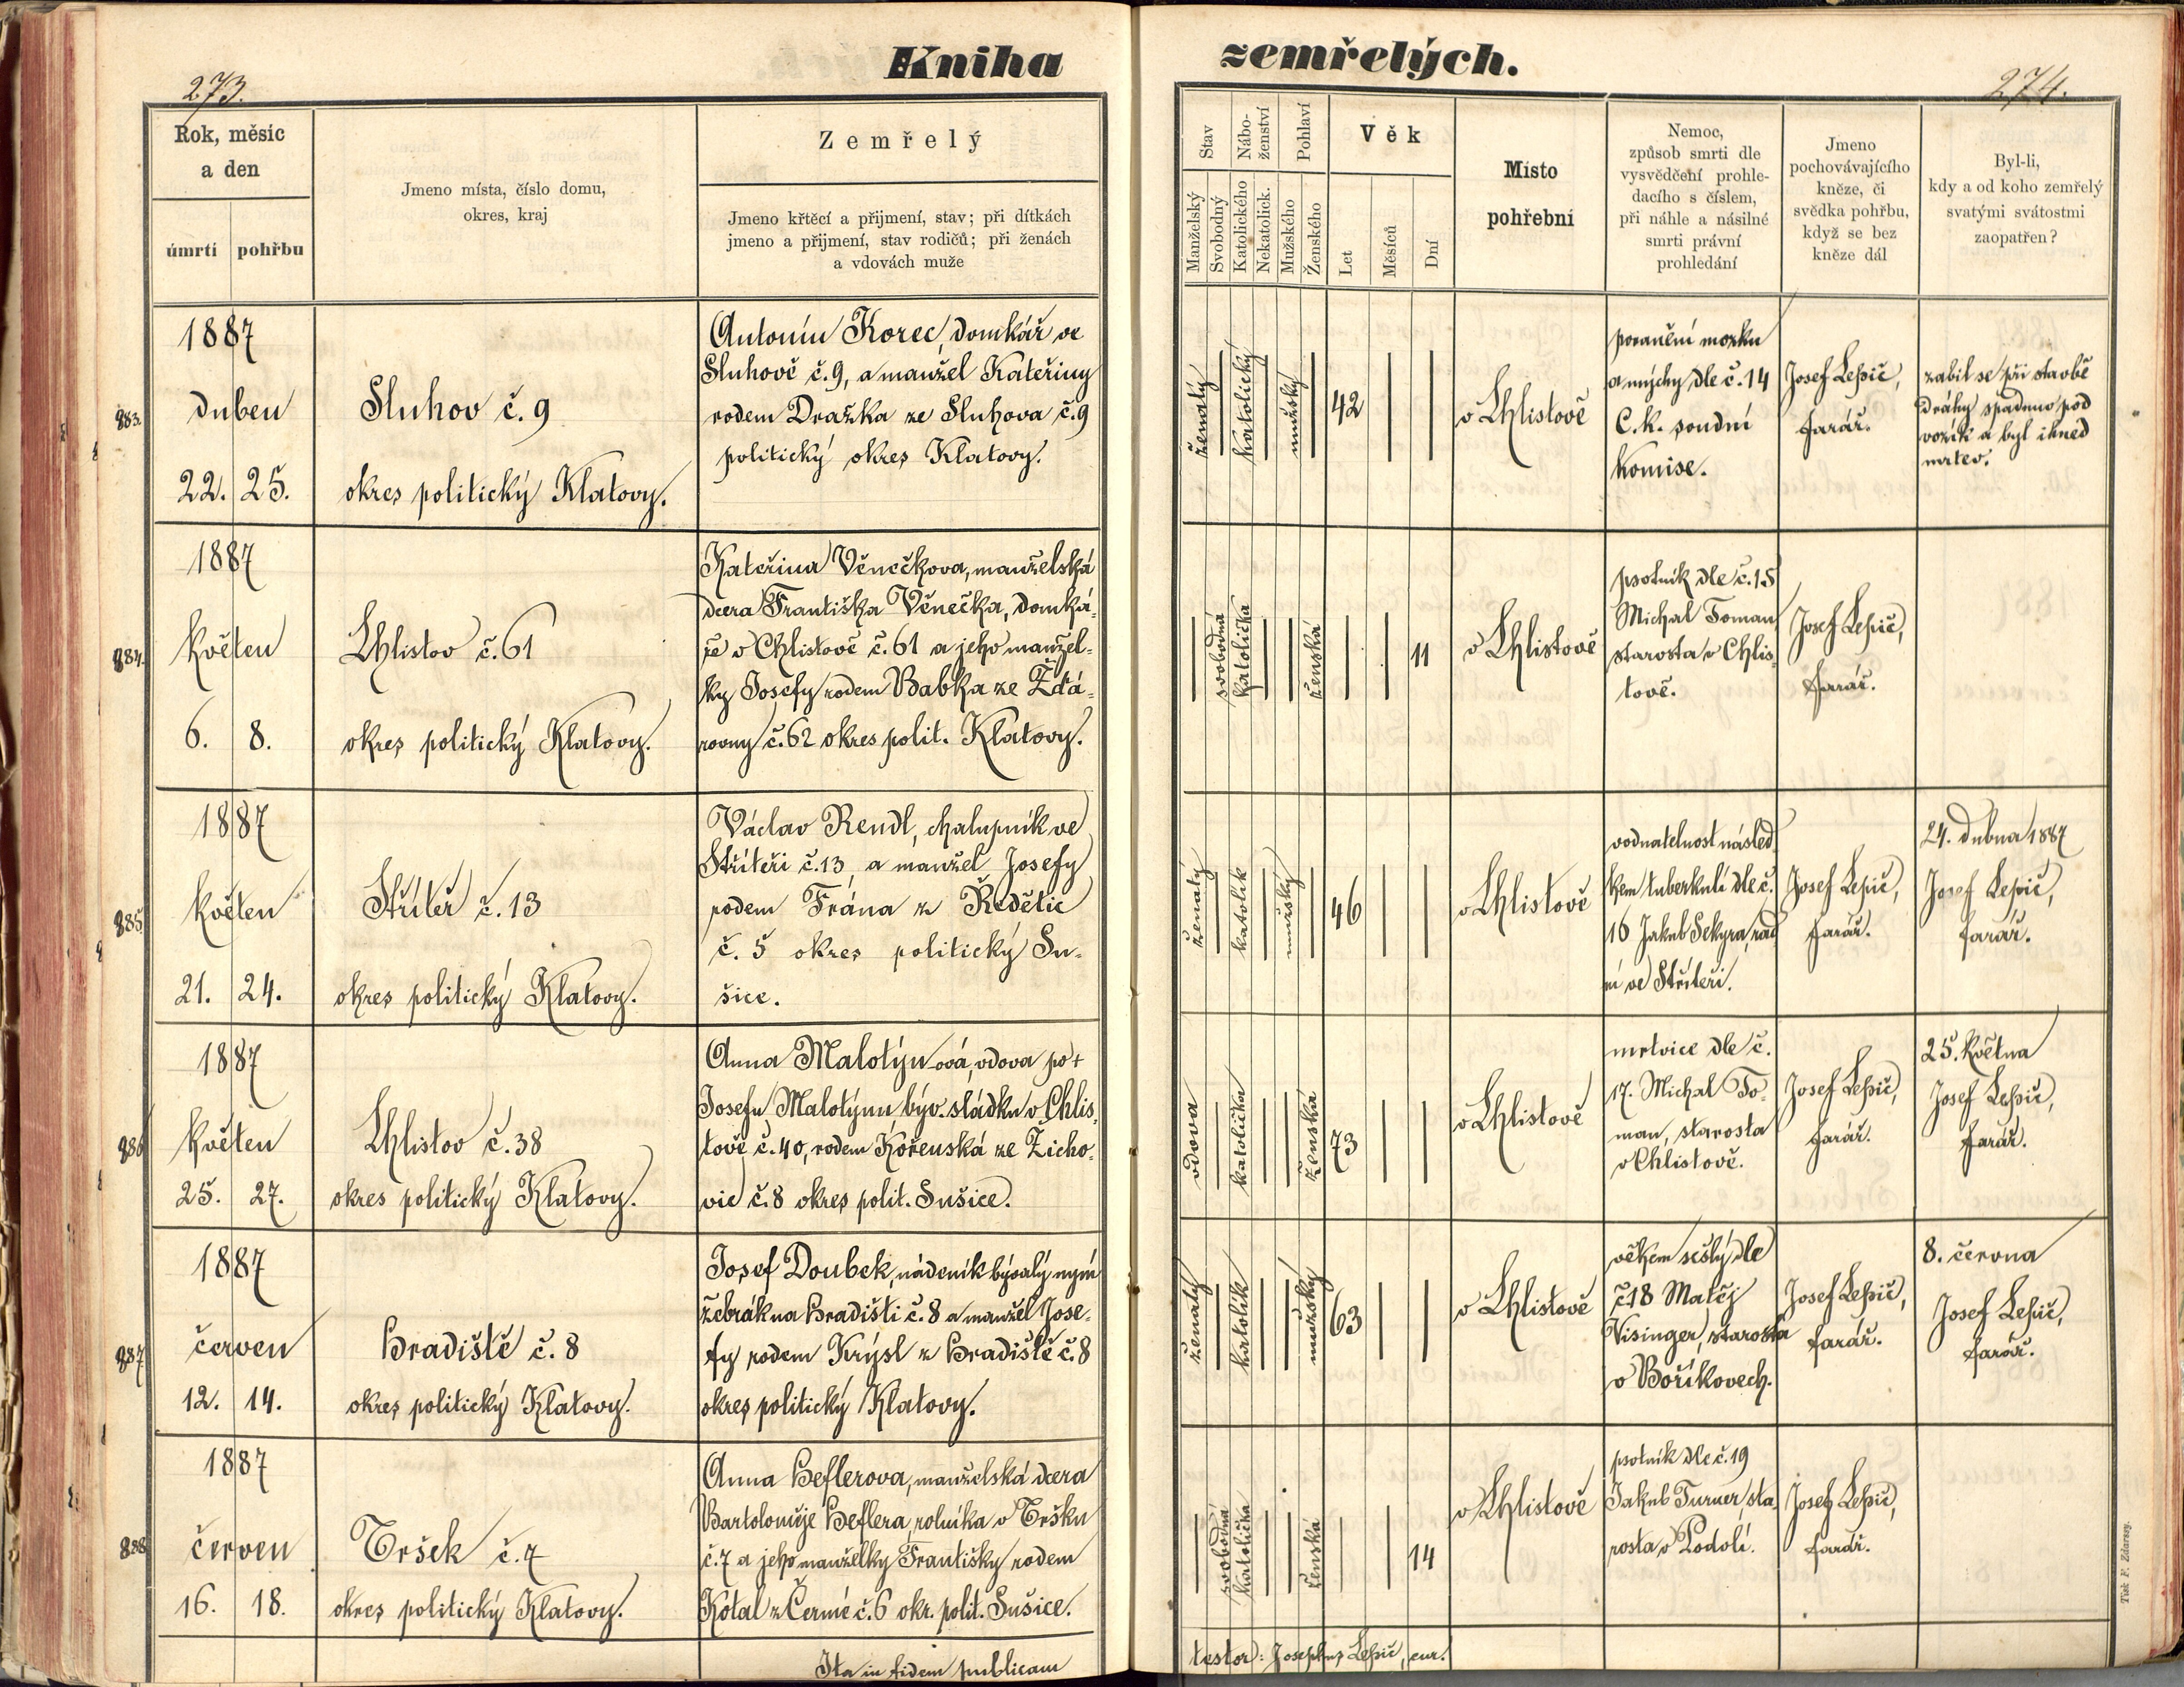 Kniha
zemřelých.
273.
274.
Rok, měsíc
a den
úmrtí
pohřbu
Jmeno místa, číslo domu,
okres, kraj
Zemřelý
Jmeno křtěcí a přijmení, stav; při dítkách
jmeno a přijmení, stav rodičů; při ženách
a vdovách muže
Stav
Manželský
Svobodný
Nábo-
ženství
Katolického
Nekatolick.
Pohlaví
Mužského
Ženského
Věk
Let
Měsíců
Dní
Místo
pohřební
Nemoc,
způsob smrti dle
vysvědčení prohle-
dacího s číslem,
při náhle a násilné
smrti právní
prohledání
Jmeno
pochovávajícího
kněze, či
svědka pohřbu,
když se bez
kněze dál
Byl-li,
kdy a od koho zemřelý
svatými svátostmi
zaopatřen?
883.
1887
duben
22. 25.
Sluhov č. 9
okres politický Klatovy.
Antonín Korec, domkář ve
Sluhově č. 9, a manžel Kateřiny
rodem Dražka ze Sluhova č. 9
politický okres Klatovy.
ženatý
katolický
mužský
42
v Chlistově
poranění mozku
a mýchy dle č. 14
C. k. soudní
komise.
Josef Lepič,
farář.
zabil se při stavbě
dráhy spadnuv pod
vozík a byl ihned
mrtev.
884.
1887
květen
6. 8.
Chlistov č. 61
okres politický Klatovy.
Kateřina Věnečkova, manželská
dcera Františka Věnečka, domká-
ře v Chlistově č. 61 a jeho manžel-
ky Josefy rodem Babka ze Žďá-
rovny č. 62 okres polit. Klatovy.
svobodná
katolička
ženská
11
v Chlistově
psotník dle č. 15
Michal Toman
starosta v Chlis-
tově.
Josef Lepič,
farář.
885.
1887
květen
21. 24.
Střítěř č. 13
okres politický Klatovy.
Václav Rendl, chalupník ve
Střítěři č. 13, a manžel Josefy
rodem Frána z Ředětic
č. 5 okres politický Su-
šice.
ženatý
katolík
mužský
46
v Chlistově
vodnatelnost násled
kem tuberkulí dle č.
16 Jakub Sekyra, rad
ní ve Střítěři.
Josef Lepič,
farář.
24. dubna 1887
Josef Lepič,
farář.
886
1887
květen
25. 27.
Chlistov č. 38
okres politický Klatovy.
Anna Malotýnová, vdova po †
Josefu Malotýnu býv. sládku v Chlis-
tově č. 40, rodem Kořenská ze Žicho-
vic č. 8 okres polit. Sušice.
vdova
katolička
ženská
73
v Chlistově
mrtvice dle č.
17. Michal To-
man, starosta
v Chlistově.
Josef Lepič,
farář.
25. května
Josef Lepič,
farář.
887
1887
červen
12. 14.
Hradiště č. 8
okres politický Klatovy.
Josef Doubek, nádeník bývalý nyní
žebrák na Hradišti č. 8 a manžel Jose-
fy rodem Krýsl z Hradiště č. 8
okres politický Klatovy.
ženatý
katolík
mužský
63
v Chlistově
věkem sešlý dle
č. 18 Matěj
Visinger, starosta
v Boříkovech.
Josef Lepič,
farář.
8. června
Josef Lepič,
farář.
888
1887
červen
16. 18.
Tršek č. 7
okres politický Klatovy.
Anna Heflerova, manželská dcera
Bartoloměje Heflera, rolníka v Tršku
č. 7 a jeho manželky Františky rodem
Kotal z Černé č. 6 okr. polit. Sušice.
svobodná
katolička
ženská
14
v Chlistově
psotník dle č. 19
Jakub Turner, sta-
rosta v Podolí.
Josef Lepič,
farář.
Ita in fidem publicam
testor: Josephus Lepič, cur.
Tisk F. Zdarssy.